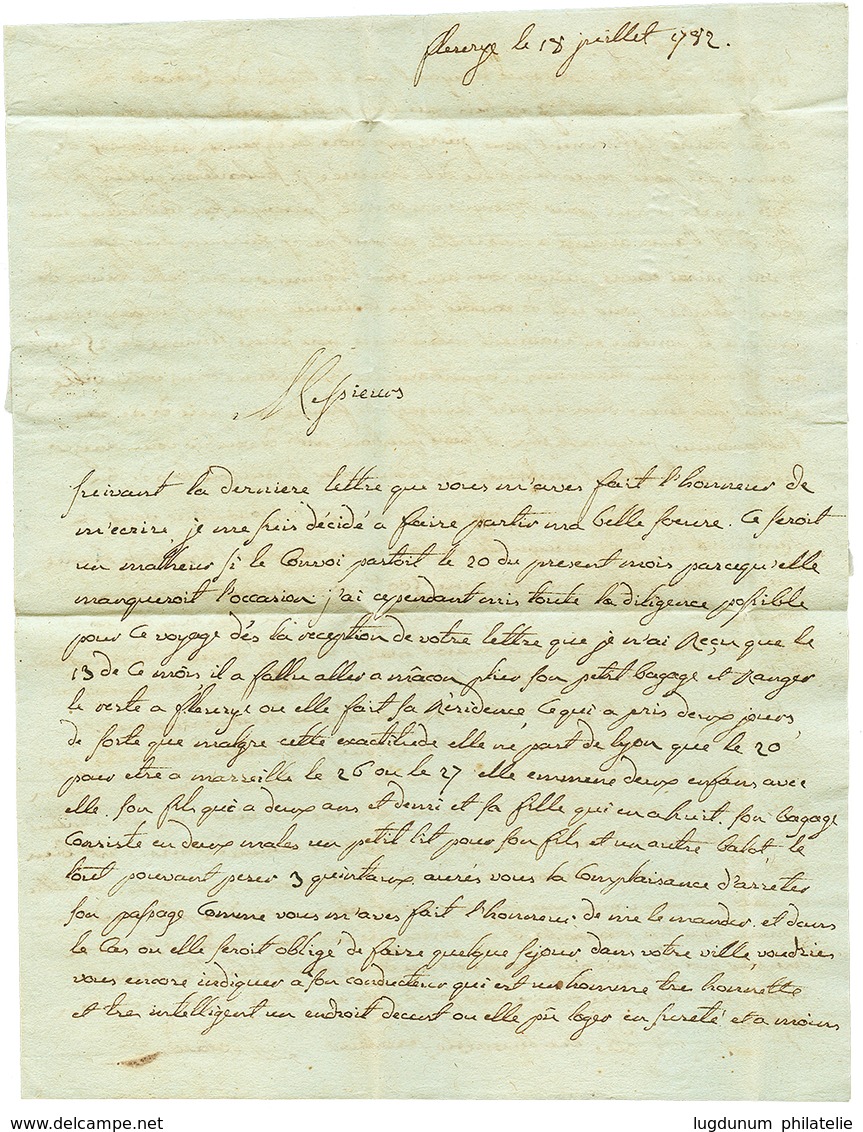 fleurye le 18 juillet 1782.
Messieurs
suivant la derniere lettre que vous m'aves fait l'honneur de
m'ecrire, je me suis décidé a faire partir ma belle soeure. Ce seroit
un malheur si le Convoi partoit le 20 du present mois parcequ'elle
manqueroit l'occasion. j'ai cependant mis toute la diligence possible
pour ce voyage dés la reception de votre lettre que je n'ai Reçu que le
13 de ce mois il a fallu aller a mâcon plier son petit bagage et Ranger
le reste a fleurye ou elle fait sa Résidence Ce qui a pris deux jours,
de sorte que malgre cette exactitude elle ne part de lyon que le 20
pour etre a marseille le 26 ou le 27 elle emmene deux enfans avec
elle. son fils qui a deux ans et demi et sa fille qui en a huit. son bagage
Consiste en deux males un petit lit pour son fils et un autre balot, le
tout pouvant peser 3 quintaux. aurés vous la Complaisance d'arreter
son passage Comme vous m'aves fait l'honneur de me le mander. et dans
le Cas ou elle seroit obligé de faire quelque sejour dans votre ville, voudries
vous encore indiquer a son conducteur qui est un homme tres honnette
et tres intelligent un endroit decent ou elle puis loger en sureté et a moins
www.delcampe.net
lugdunum philatelie